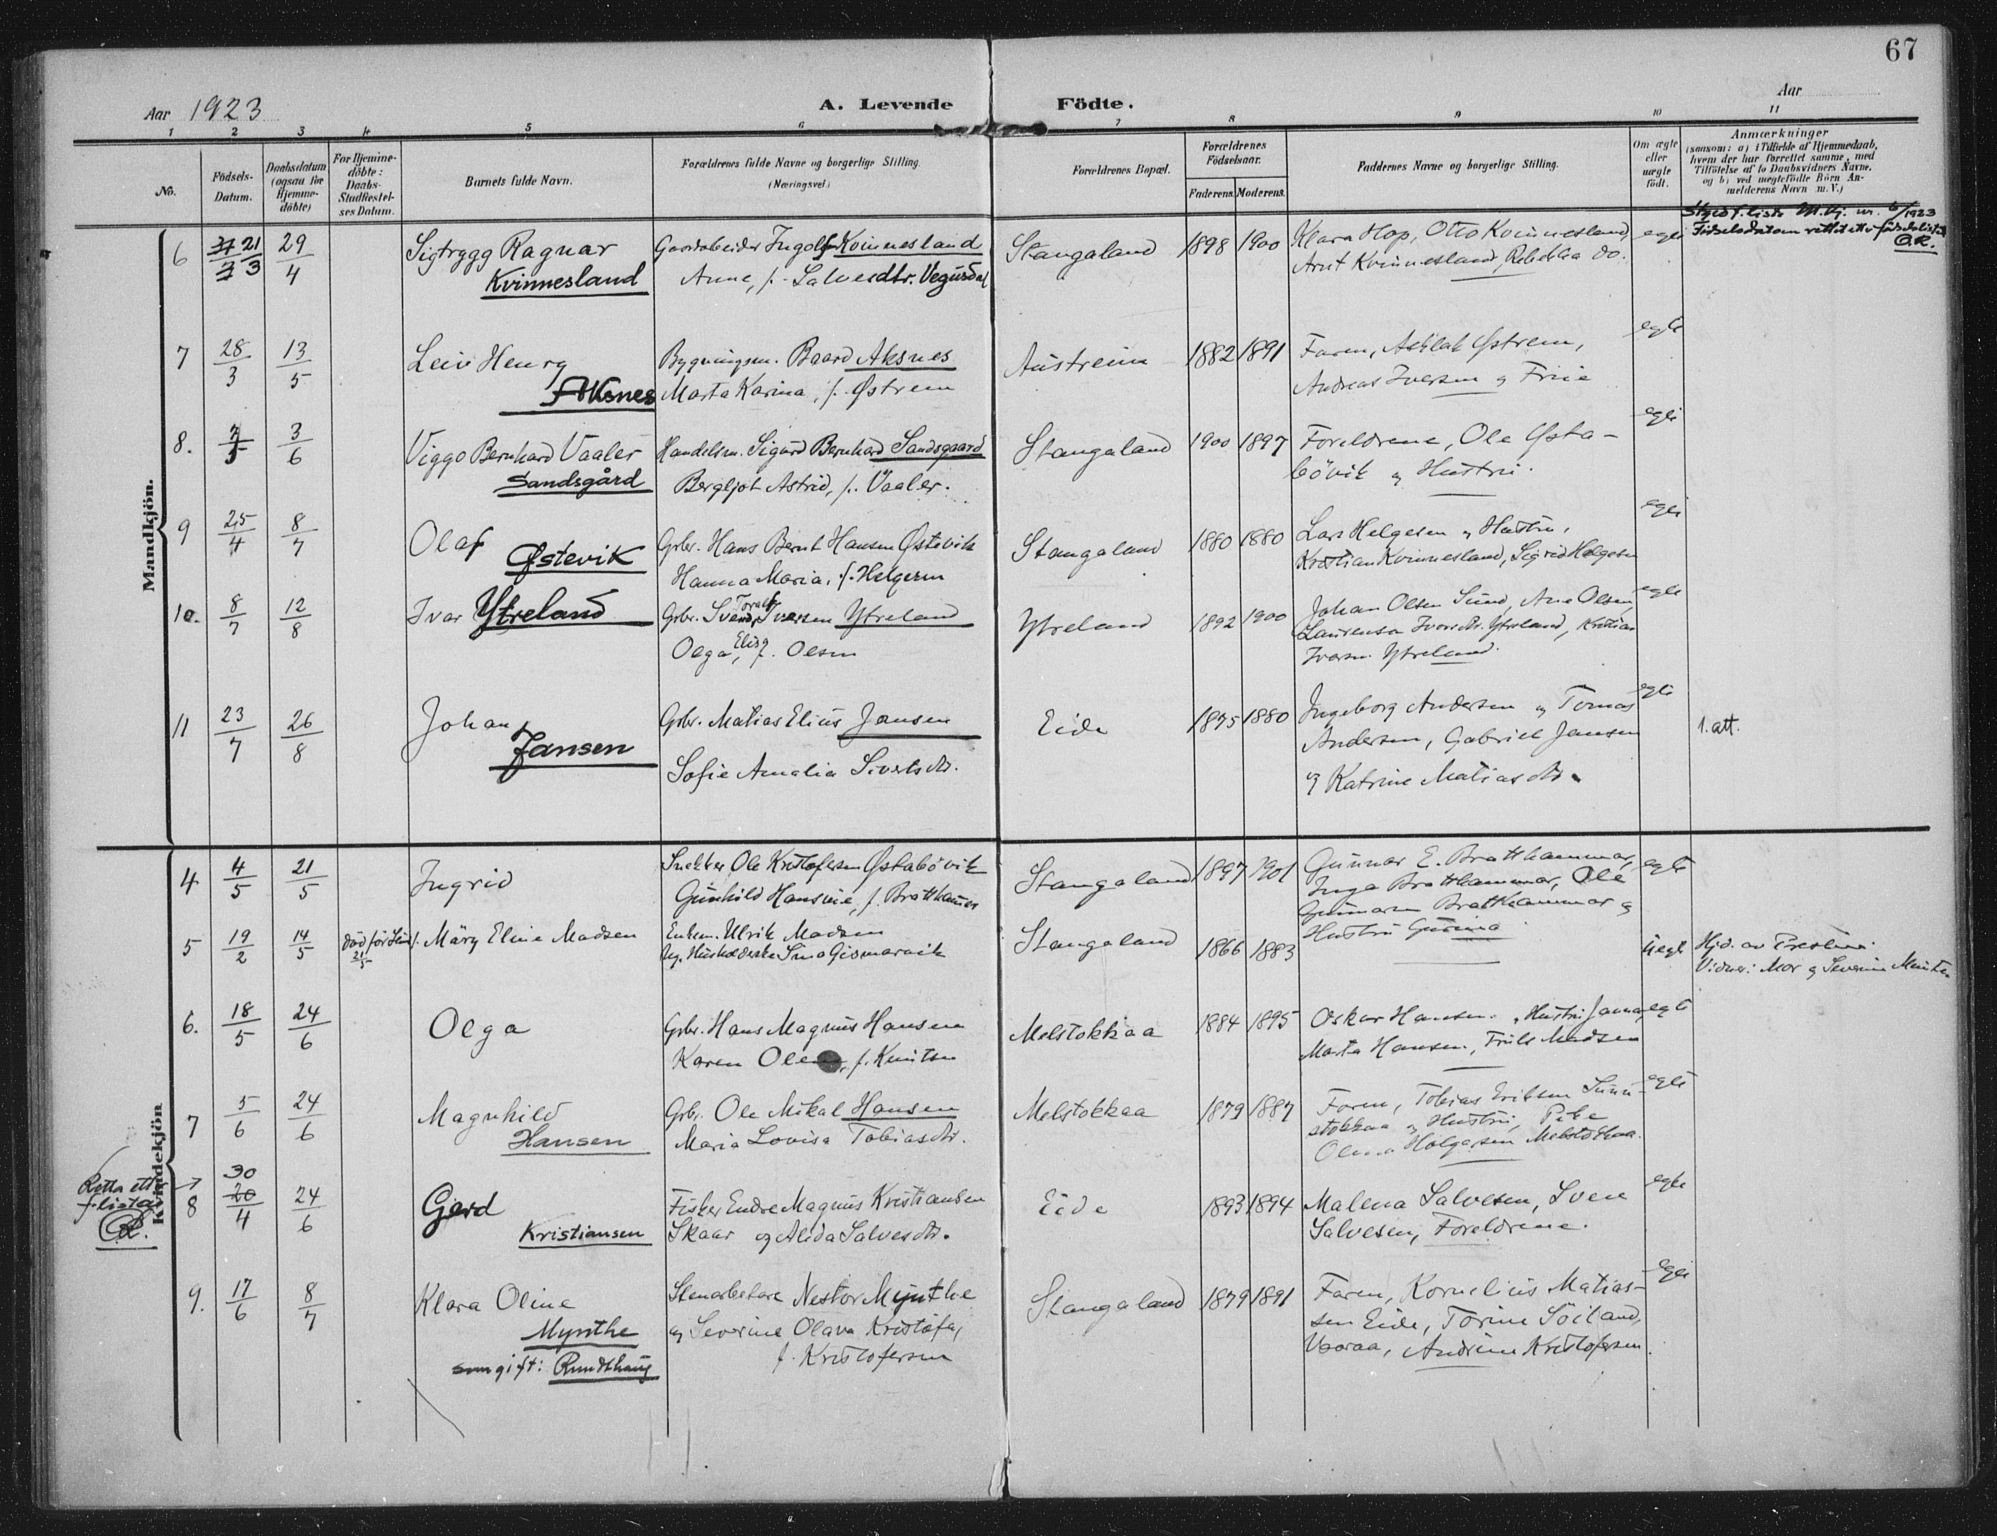 67
Aar 1923
A. Levende Födte.
Aar
1 2 3 4 5 6 7 8 9 10 11
No.
Födsels-
Datum.
Daabsdatum
(ogsaa for
Hjemme-
döbte)
For Hjemme-
döbte:
Daabs-
Stadfæstel-
ses Datum.
Barnets fulde Navn.
Forældrenes fulde Navne og borgerlige Stilling.
(Næringsvei.)
Forældrenes Bopæl.
Forældrenes
Födselsaar.
Faderens. Moderens.
Faddernes Navne og borgerlige Stilling.
Om ægte
eller
uægte
födt.
Anmærkninger
(saasom: a) i Tilfælde af Hjemmedaab,
hvem der har forrettet samme, med
Tilföielse af to Daabsvidners Navne,
og b) ved uægtefödte Börn An-
melderens Navn m. V.)
Mandkjön.
6 21/3 29/4 Sigtrygg Ragnar
Kvinnesland
Gaardarbeider Ingolf Kvinnesland
Anne, f. Salvesdtr. Vegusdal
Stangaland 1898 1900
Klara Hop, Otto Kvinnesland,
Arnt Kvinnesland, Rebekka do.
egte
Fødselsdatum rettet etter fødselsliste
O.R.
7 28/3 13/5 Leiv Henry
Aksnes
Bygningsm. Baard Aksnes
Marta Karina, f. Østrem
Austreim 1882 1891
Faren, Aslak Østrem,
Andreas Iversen og Frue
egte
8. 3/6 Viggo Bernhard Vaaler
Sandsgård
Handelsm. Sigurd Bernhard Sandsgaard
Bergljot Astrid, f. Vaaler.
Stangaland 1900 1897
Foreldrene, Ole Østa-
bövik og Hustru.
egte
9 25/4 8/7 Olaf
Østevik
Grbr. Hans Bernt Hansen Østevik
Hanna Maria, f. Helgesen
Stangaland 1880 1880
Lars Helgesen og Hustru,
Kristian Kvinnesland, Sigrid Helgesen
egte
10. 8/7 12/8 Ivar Ytreland
Grbr. Svend Toralf Iversen Ytreland
Olga Elise, f. Olsen
Ytreland 1892 1900
Johan Olsen Sund, Ane Olsen,
Laurensa Iversdtr. Ytreland, Kristian
Iversen Ytreland.
egte
11 23/7 26/8 Johan
Jansen
Grbr. Matias Elius Jansen
Sofie Amalia Sivertsdtr.
Eide 1875 1880
Ingeborg Andersen og Tomas
Andersen, Gabriel Jansen
og Katrine Matiasdtr.
egte
1. att.
Kvindekjön
4 4/5 21/5 Ingrid
Snekker Ole Kristofersen Østabövik
Gunhild Hansine, f. Bratthammer
Stangaland 1897 1901
Gunnar E. Bratthammar,
Inga Bratthammar, Ole
Gunnarsen Bratthammar og
Hustru Gurina
egte
5 19/2 14/5 21/5 Märy Eline Madsen
Enkem. Ulrik Madsen
Stangaland 1866 1883
uegte
Hjd. av Presten.
Vidner: Mor og Severine
6. 18/5 24/6 Olga
Grbr. Hans Magnus Hansen
Karen, f. Knutsen
Melstokkaa 1884 1895
Oskar Hansen, Hustru Janna,
Marta Hansen, Madsen
egte
7 5/6 24/6 Magnhild
Hansen
Grbr. Ole Mikal Hansen
Maria Lovisa Tobiasdtr.
Melstokkaa 1879 1887
Faren, Tobias Eriksen
stokkaa og Hustru,
Olena Helgesen Melstokkaa.
egte
Retta ett.
f.lista
8 30/4 24/6 Gerd
Kristiansen
Fisker Endre Magnus Kristiansen
Skaar og Alida Salvesdtr.
Eide 1893 1894
Malena Salvesen, Sven
Salvesen, Foreldrene.
egte
9. 17/6 8/7 Klara Oline
Mynthe
som gift: Rundthaug
Stenarbeider Nestor Mynthe
og Severine Olava Kristofa,
f. Kristofersen
Stangaland 1879 1891
Faren, Kornelius Matias-
sen Eide, Torine Söiland,
Vaaraa, Andrine Kristofersen.
egte